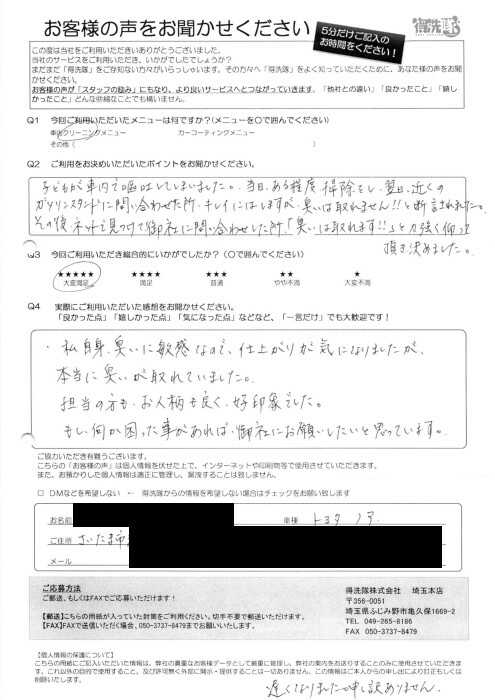 お客様の声をお聞かせください
5分だけご記入の
お時間をください！
得洗隊
この度は当社をご利用いただきありがとうございました。
当社のサービスをご利用いただき、いかがでしたでしょうか？
まだまだ「得洗隊」をご存知ない方々がいらっしゃいます。その方々へ「得洗隊」をよく知っていただくために、あなた様の声をお聞
かせください。
お客様の声が「スタッフの励み」にもなり、より良いサービスへとつながっていきます。「他社との違い」「良かったこと」「嬉し
かったこと」どんな些細なことでも構いません。
Q1 今回ご利用いただいたメニューは何ですか？(メニューを〇で囲んでください)
車内クリーニングメニュー カーコーティングメニュー
その他（ ）
Q2 ご利用をお決めいただいたポイントをお聞かせください。
子どもが車内で嘔吐してしまいました。当日、ある程度掃除をし、翌日、近くの
ガソリンスタンドに問い合わせた所、キレイにはしますが、臭いは取れません!!と断言されました。
その後ネットで見つけて御社に問い合わせした所、「臭いは取れます!!」と力強く仰って
頂き決めました。
Q3 今回ご利用いただき総合的にいかがでしたか？（〇で囲んでください）
★★★★★ ★★★★ ★★★ ★★ ★
大変満足 満足 普通 やや不満 大変不満
Q4 実際にご利用いただいた感想をお聞かせください。
「良かった点」「嬉しかった点」「気になった点」などなど、「一言だけ」でも大歓迎です！
・私自身、臭いに敏感なので、仕上がりが気になりましたが、
本当に臭いが取れていました。
担当の方も、お人柄も良く、好印象でした。
もし、何か困った事があれば、御社にお願いしたいと思っています。
ご協力いただき有難うございます。
こちらの「お客様の声」は個人情報を伏せた上で、インターネットや印刷物等で使用させていただきます。
また、お預かりした個人情報は適正に管理し、漏洩することは致しません。
□ DMなどを希望しない ← 得洗隊からの情報を希望しない場合はチェックをお願い致します
お名前 車種 トヨタ ノア
ご住所 さいたま市
メール
ご応募方法
ご郵送、もしくはFAXでご応募いただけます！
【郵送】こちらの用紙が入っていた封筒をご利用ください。切手不要で郵送いただけます。
【FAX】FAXで送信いただく場合、050-3737-8479までお願いいたします。
得洗隊株式会社 埼玉本店
〒356-0051
埼玉県ふじみ野市亀久保1669-2
TEL 049-265-8186
FAX 050-3737-8479
【個人情報の保護について】
こちらの用紙にご記入いただいた情報は、弊社の貴重なお客様データとして厳重に管理し、弊社の案内をお送りすることのみに使用させていただきま
す。これ以外の目的で使用すること、及び許可無く外部に開示・提供することは一切ありません。この情報はご本人からの申し出により訂正もしくは
削除いたします。
遅くなりました申し訳ありません。